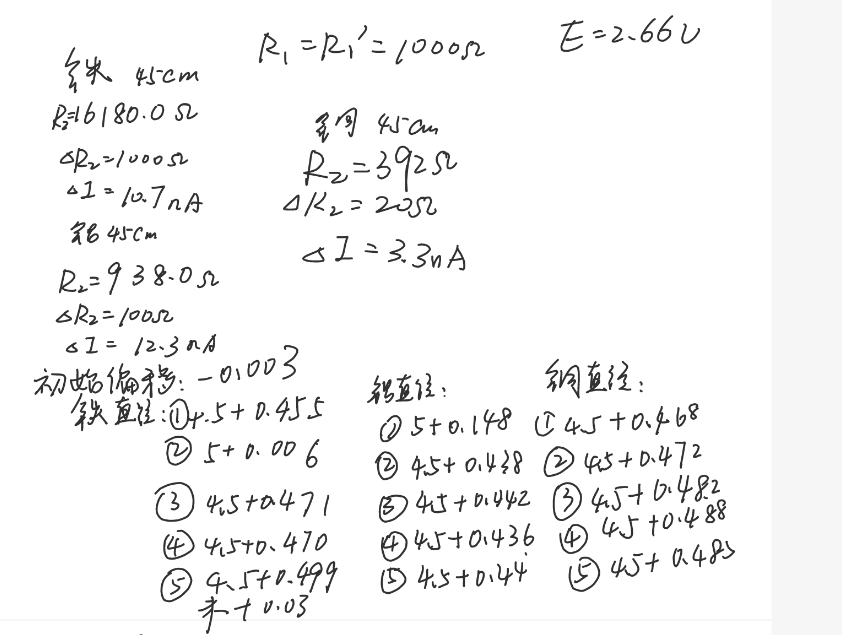 R₁=R₁'=1000Ω
E=2.66V
铁 45cm
R₂=16180.0Ω
ΔR₂=1000Ω
ΔI=10.7nA
铝 45cm
R₂=938.0Ω
ΔR₂=100Ω
ΔI=12.3nA
铜 45cm
R₂=392Ω
ΔR₂=20Ω
ΔI=3.3nA
初始偏移:-0.003
铁直径:①4.5+0.455
②5+0.006
③4.5+0.471
④4.5+0.470
⑤4.5+0.499
未+0.03
铝直径:
①5+0.148
②4.5+0.438
③4.5+0.442
④4.5+0.436
⑤4.5+0.44
铜直径:
①4.5+0.468
②4.5+0.472
③4.5+0.482
④4.5+0.488
⑤4.5+0.485